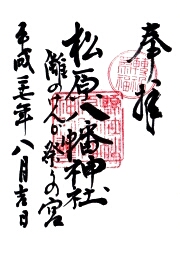 奉拝
松原八幡神社
灘のけんか祭りの宮
平成二十五年八月吉日